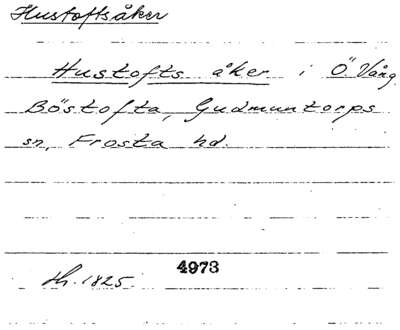 Hustoftsåker
Hustofts åker i Ö. Vång
Böstofta, Gudmuntorps
sn, Frosta hd.
4973
Lh. 1825.